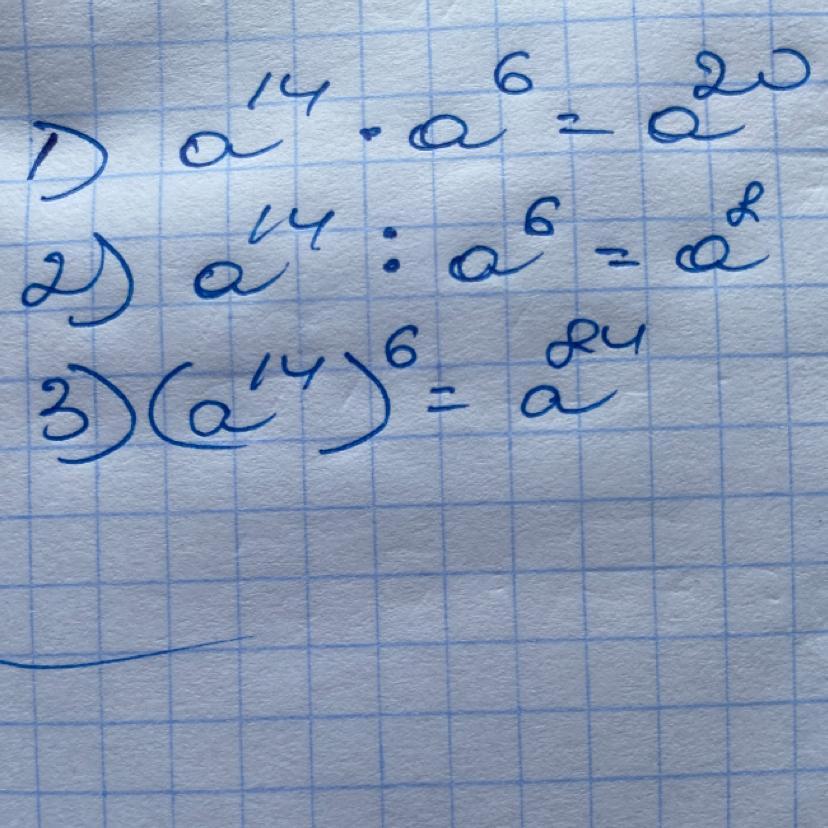 1) a¹⁴ · a⁶ = a²⁰
2) a¹⁴ : a⁶ = a⁸
3) (a¹⁴)⁶ = a⁸⁴